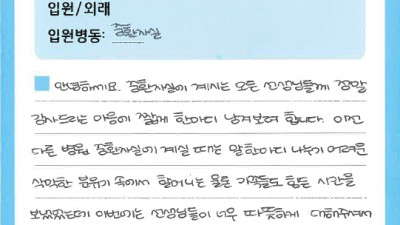 입원/외래
입원병동: 중환자실
안녕하세요. 중환자실에 계시는 모든 선생님들께 정말
감사드리는 마음에 짧게 한마디 남겨보려 합니다. 이전
다른 병원 중환자실에 계실 때는 말 한마디 나누기 어려운
삭막한 분위기 속에서 할머니는 물론 가족들도 힘든 시간을
보냈었는데 이번에는 선생님들이 너무 따뜻하게 대해주셔서